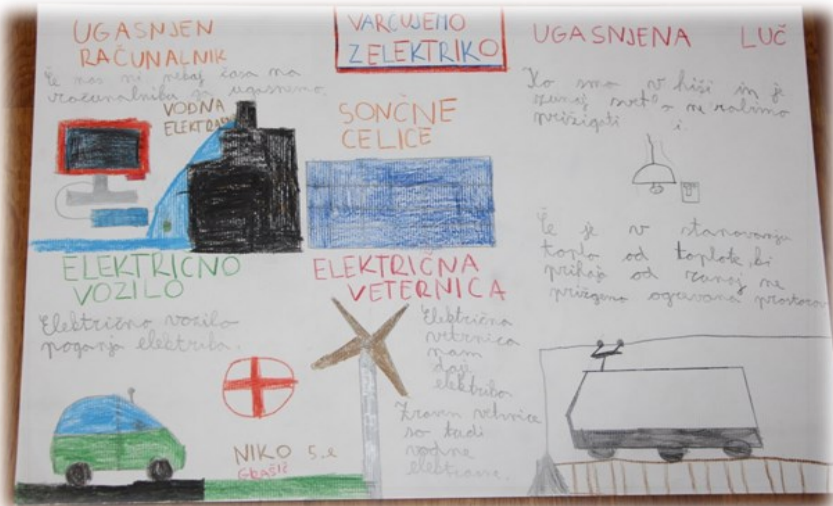 VARČUJEMO
Z ELEKTRIKO
UGASNJEN
RAČUNALNIK
Če nas ni nekaj časa na
računalniku ga ugasnemo
VODNA
ELEKTRARN
SONČNE
CELICE
UGASNJENA LUČ
Ko smo v hiši in je
zunaj svetlo ne rabimo
prižigati
Če je v stanovanju
toplo od toplote, ki
prihaja od zunaj ne
prižgemo ogrevana prostora
ELEKTRIČNO
VOZILO
Električno vozilo
poganja elektrika.
ELEKTRIČNA
VETERNICA
Električna
vetrnica
nam
daje
elektriko
Zraven vetrnice
so tudi
vodne
elektrarne.
NIKO 5.e
GRAŠIČ